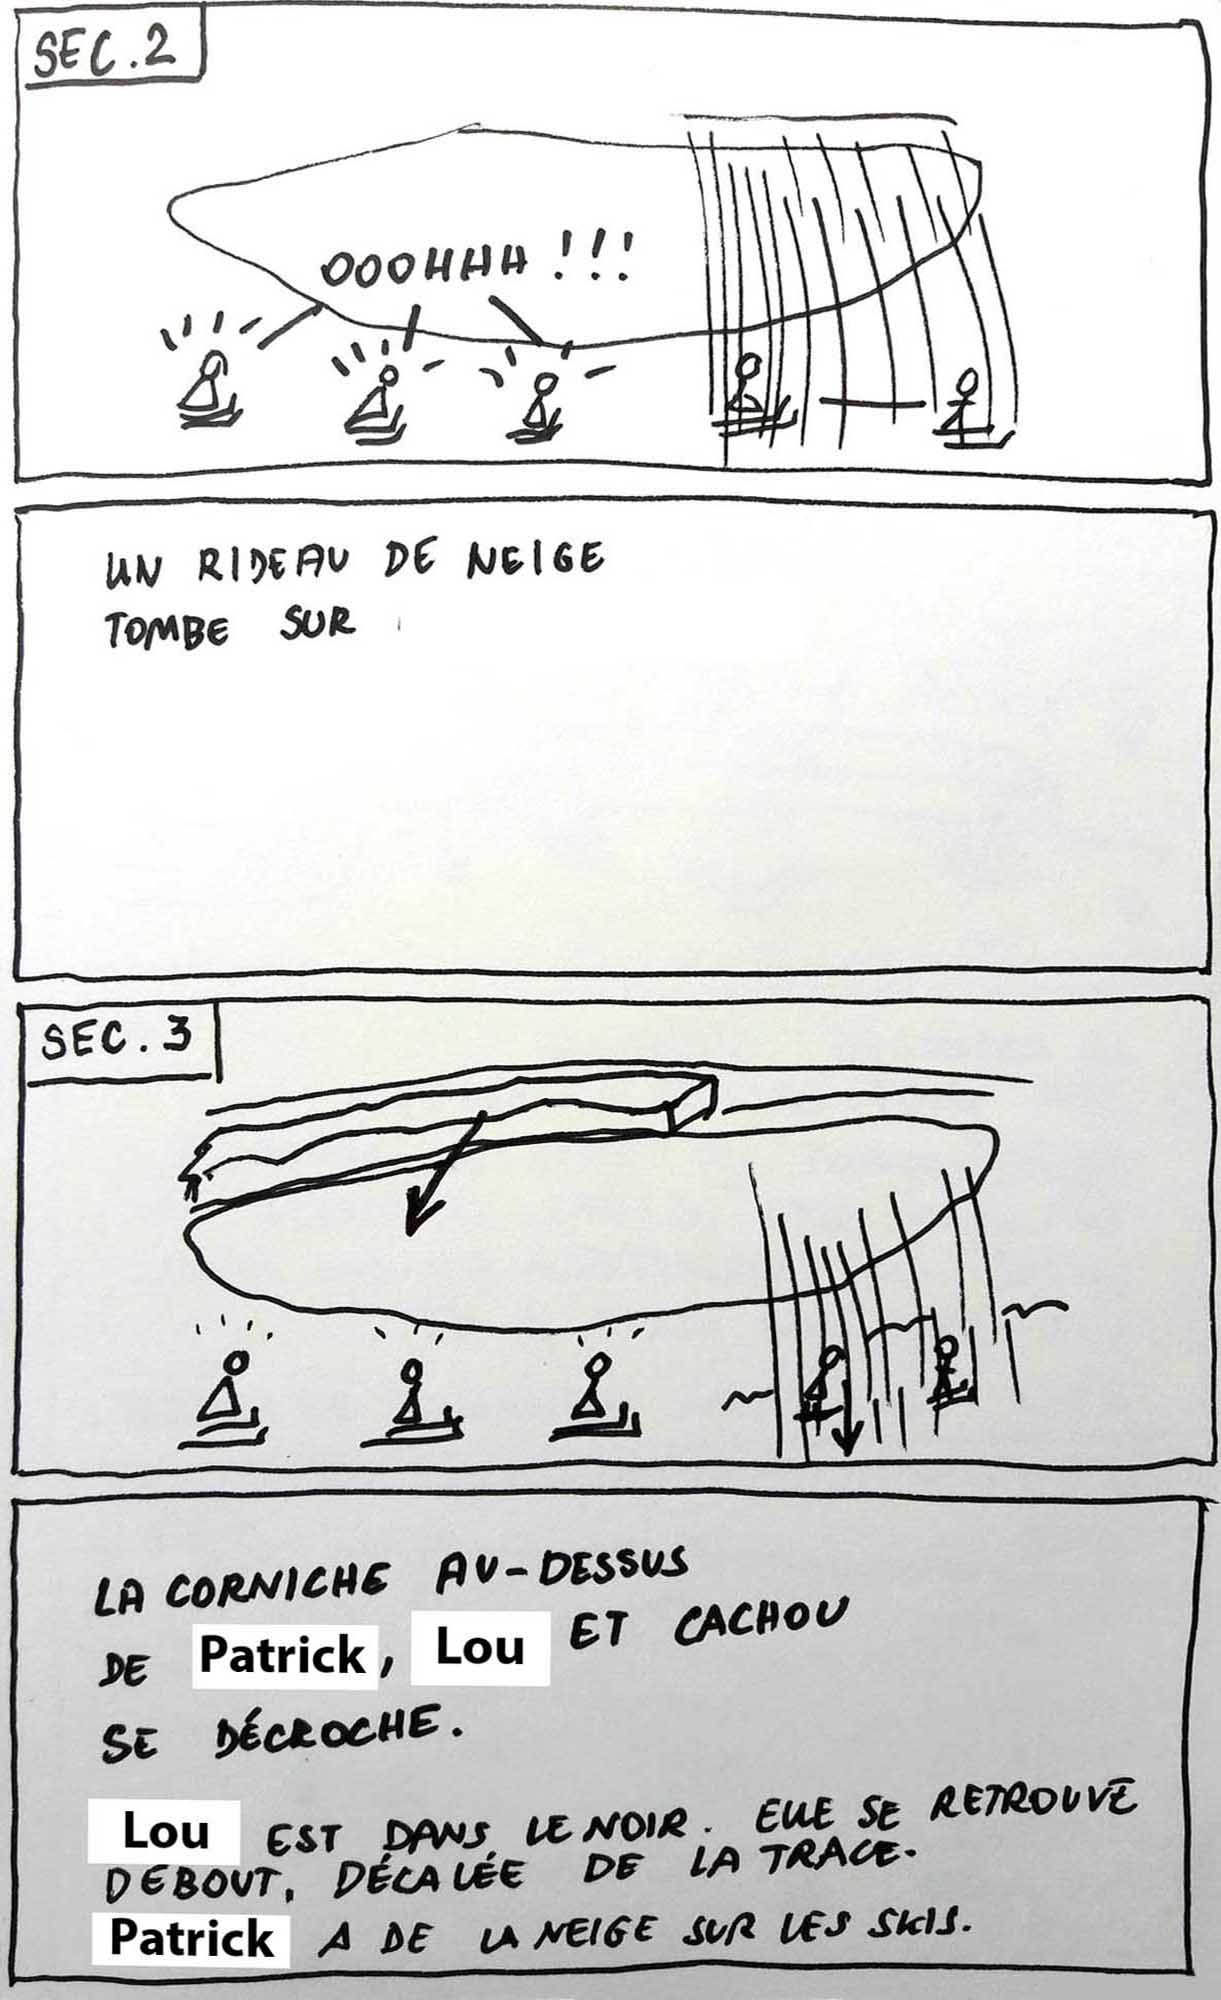 SEC.2
OOOHHH !!!
UN RIDEAU DE NEIGE
TOMBE SUR
SEC.3
LA CORNICHE AU-DESSUS
DE Patrick, Lou ET CACHOU
SE DÉCROCHE.
Lou EST DANS LE NOIR. ELLE SE RETROUVE
DEBOUT, DÉCALÉE DE LA TRACE.
Patrick A DE LA NEIGE SUR LES SKIS.